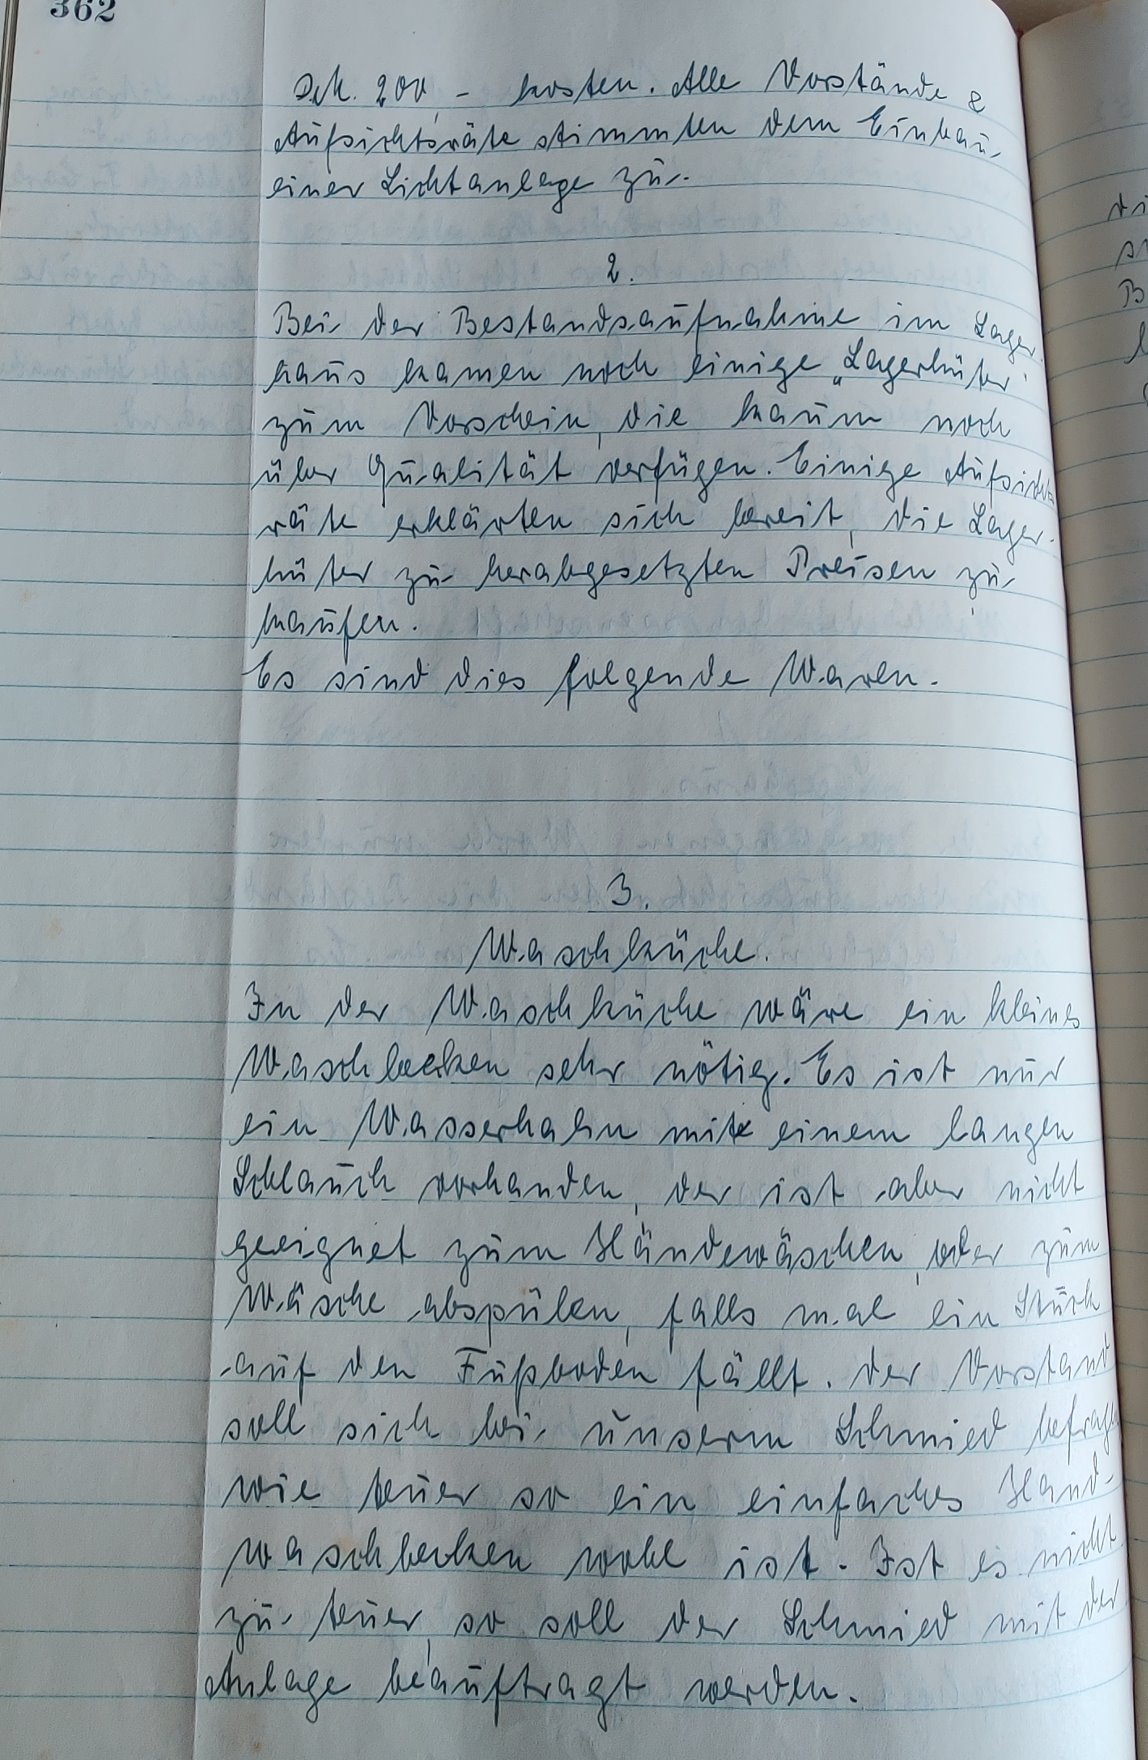 362
DM. 200,- kosten. Alle Vorstände &
Aufsichtsräte stimmten dem Einbau
einer Lichtanlage zu.
2.
Bei der Bestandsaufnahme im Lager-
haus kamen noch einige „Lagerhüter"
zum Vorschein, die kaum noch
über Qualität verfügen. Einige Aufsichts
räte erklärten sich bereit, die Lager-
hüter zu herabgesetzten Preisen zu
kaufen.
Es sind dies folgende Waren.
3.
Waschküche.
In der Waschküche wäre ein kleines
Waschbecken sehr nötig. Es ist nur
ein Wasserhahn mit einem langen
Schlauch vorhanden, der ist aber nicht
geeignet zum Händewäschen, oder zum
Wäsche abspülen, falls mal ein Stück
auf den Fußboden fällt. Der Vorstand
soll sich bei unserm Schmied
wie teuer so ein einfaches Hand-
waschbecken wohl ist. Ist es nicht
zu teuer, so soll der Schmied mit der
Anlage beauftragt werden.